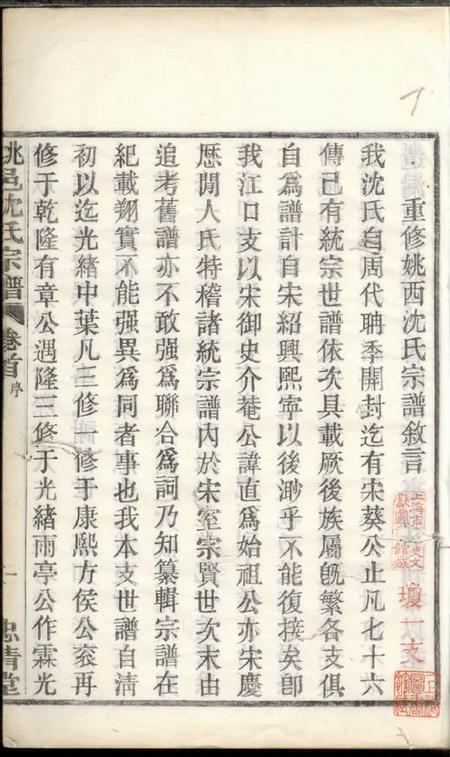 重修姚西沈氏宗譜敘言
我沈氏自周代聃季開封迄有宋葵公止凡七十六
傳已有統宗世譜依次具載厥後族屬旣繁各支俱
自爲譜計自宋紹興熙寧以後渺乎不能復接矣卽
我江口支以宋御史介菴公諱直爲始祖公亦宋慶
歷閒人氏特稽諸統宗譜內於宋室宗賢世次末由
追考舊譜亦不敢强爲聯合爲詞乃知纂輯宗譜在
紀載翔實不能强異爲同者事也我本支世譜自淸
初以迄光緖中葉凡三修 修于康熙方侯公衮再
修于乾隆有章公遇隆三修于光緖雨亭公作霖光
姚邑沈氏宗譜 卷首 序 一 忠淸堂
上海市 文獻圖 館藏
瓊一支